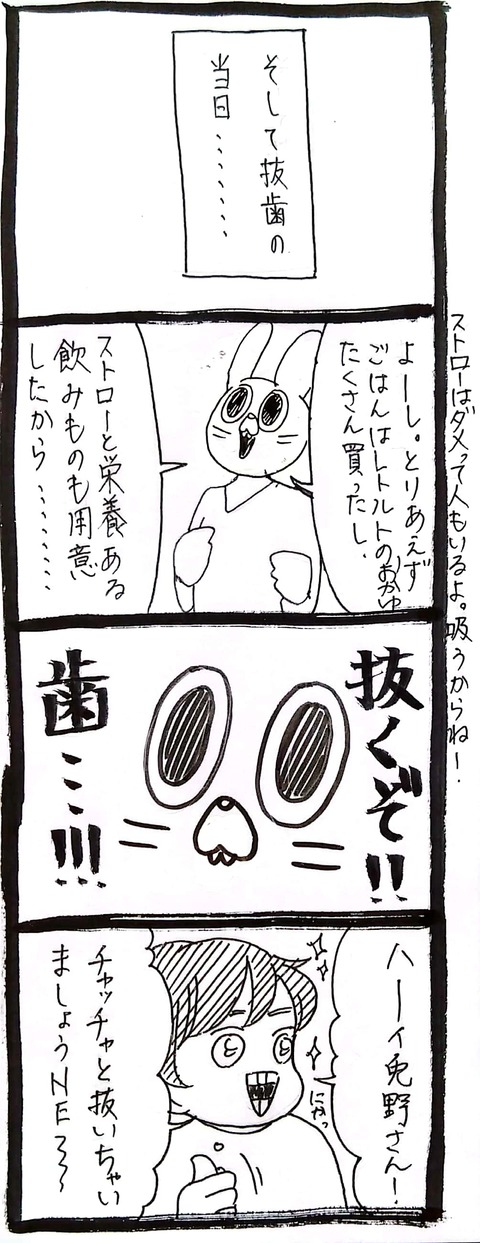 そして抜歯の
当日………
よーし。とりあえず
ごはんはレトルトのおかゆ
たくさん買ったし、
ストローと栄養ある
飲みものも用意
したから………
ストローはダメって人もいるよ。吸うからね！
抜くぞ!!
歯…!!!
ハーイ兎野さん!
にかっ
チャッチャと抜いちゃい
ましょうNE〜〜